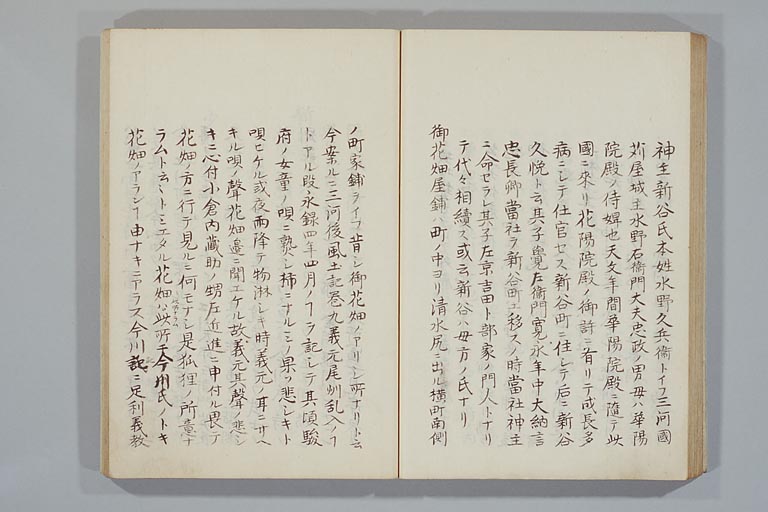 神主新谷氏本姓水野久兵衞トイフ三河國
苅屋城主水野右衞門大夫忠政ノ男母ハ華陽
院殿ノ侍婢也天文年間華陽院殿ニ隨テ此
國ニ來リ花陽院殿ノ御許ニ首リテ成長多
病ニシテ仕官セス新谷町ニ住シテ后ニ新谷
久悦ト云其子覺左衞門寛永年中大納言
忠長卿當社ヲ新谷町エ移スノ時當社神主
ニ命セラレ其子左京吉田ト部家ノ門人トナリ
テ代々相續ス或云新谷ハ母方ノ氏ナリ
御花畑屋鋪ハ町ノ中ヨリ清水尻ニ出ル横町南側
ノ町家鋪ライフ昔シ御花畑ノアリシ所ナリト云
今案ルニ三河後風土記卷九義元尾州乱入ノヿ
トアル段永録四年四月ノヿヲ記シテ其頃駿
府ノ女童ノ唄ニ熟シ柿ニナルミノ果ソ悲シキト
唄ヒケル或夜雨降テ物淋シキ時義元ノ耳ニサヘ
キル唄ノ聲花畑邉ニ聞エケル故義元其聲ノ悲シ
キニ心付小倉内藏助ノ甥左近進ニ申付ル畏テ
花畑ノ方ニ行テ見ルニ何モナシ是狐狸ノ所意ナ
ラムト云々トミエタル花畑ハ此所ニテ今川氏ノトキ
花畑ノアラシヿ由ナキニアラス今川記ニ足利義教